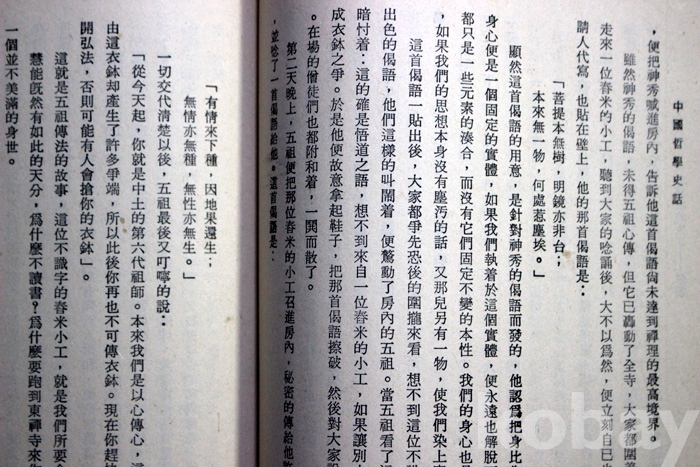 中國哲學史話
，便把神秀喊進房內，告訴他這首偈語尚未達到禪理的最高境界。
雖然神秀的偈語，未得五祖心傳，但它已轟動了全寺，大家都圍
走來一位舂米的小工，聽到大家的唸誦後，大不以為然，便立刻自己
請人代寫，也貼在壁上，他的那首偈語是：
「菩提本無樹，明鏡亦非台；
本來無一物，何處惹塵埃。」
顯然這首偈語的用意，是針對神秀的偈語而發的，他認為把身比
身心便是一個固定的實體，如果我們執着於這個實體，便永遠也解脫
都只是一些元素的湊合，而沒有它們固定不變的本性。我們的身心也是
，如果我們的思想本身沒有塵汚的話，又那兒另有一物，使我們染上
這首偈語一貼出後，大家都爭先恐後的圍攏來看，想不到這位不
出色的偈語，他們這樣的叫鬧着，便驚動了房內的五祖。當五祖看了
暗忖着：這的確是悟道之語，想不到來自一位舂米的小工，如果讓別
成衣鉢之爭。於是他便故意拿起鞋子，把那首偈語擦破，然後對大家
。在場的僧徒們也都附和着，一鬨而散了。
第二天晚上，五祖便把那位舂米的小工召進房內，秘密的傳給他
，並唸了一首偈語給他。這首偈語是：
「有情來下種，因地果還生；
無情亦無種，無性亦無生。」
一切交代清楚以後，五祖最後又叮嚀的說：
「從今天起，你就是中土的第六代祖師。本來我們是以心傳心，
由這衣鉢却產生了許多爭端，所以此後你再也不可傳衣鉢。現在你趕快
開弘法，否則可能有人會搶你的衣鉢」。
這就是五祖傳法的故事，這位不識字的舂米小工，就是我們所要
慧能既然有如此的天分，為什麼不讀書？為什麼要跑到東禪寺來
一個並不美滿的身世。
obey